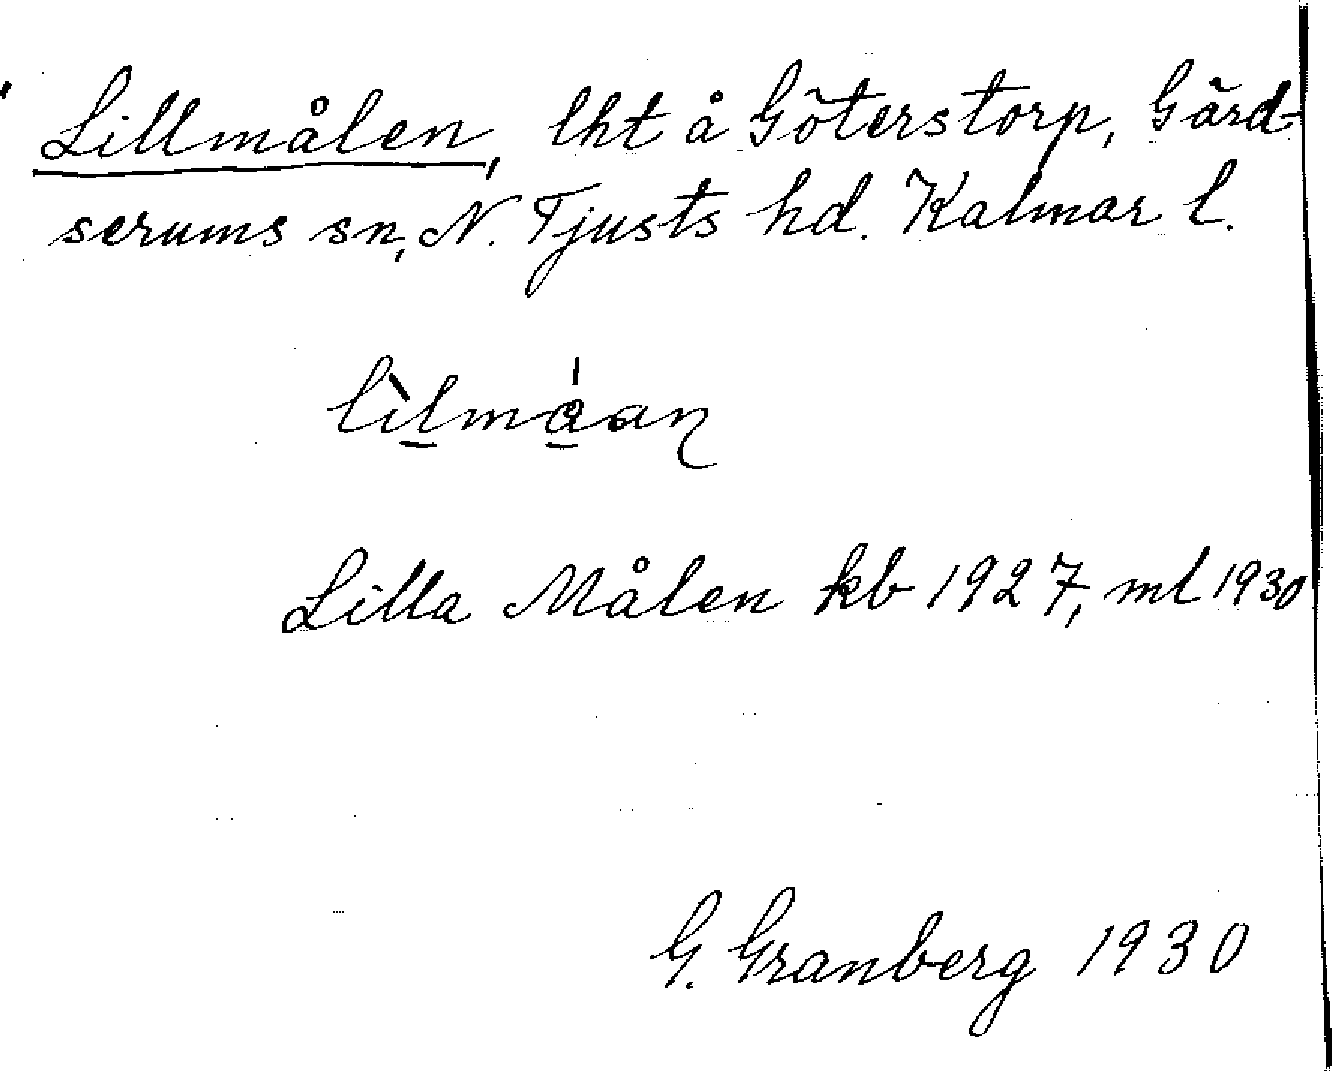 Lillmålen, lht å Göterstorp, Gärd-
serums sn, N. Tjusts hd. Kalmar l.
Lilla Målen kb 1927, ml 1930
G. Granberg 1930